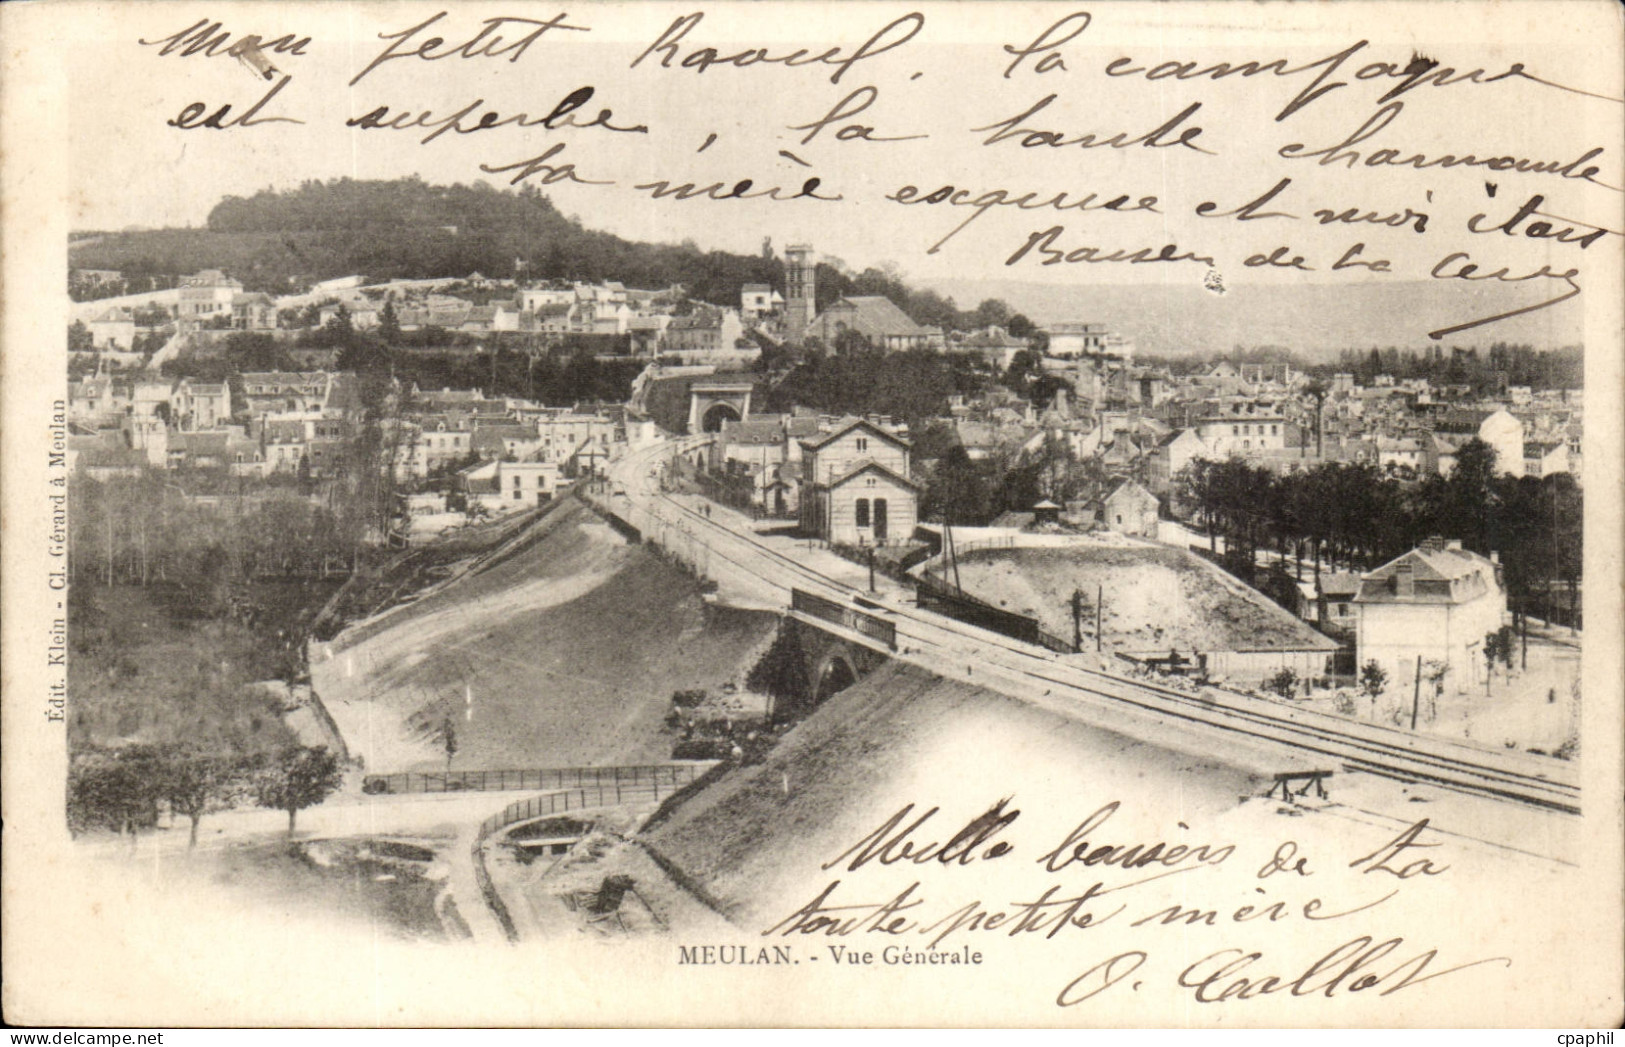 Mon petit Raoul, la campagne
est superbe, la tante charmante
ta mère exquise et moi
Baisers de ta
Édit. Klein - Cl. Gérard à Meulan
Mille baisers de ta
toute petite mère
O. Callot
MEULAN. - Vue Générale
cpaphil